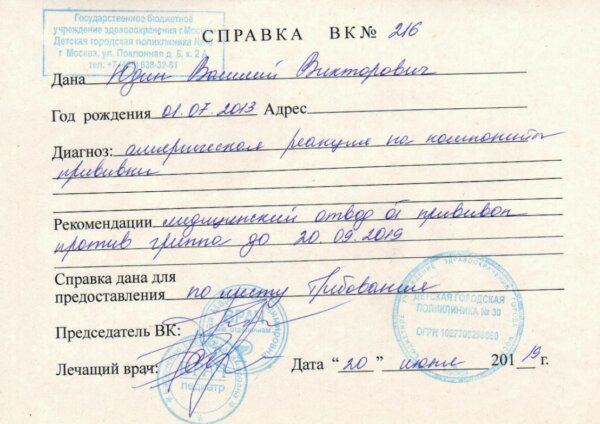 Государственное бюджетное
учреждение здравоохранения г.Москвы
Детская городская поликлиника
г Москва, ул. Поклонная д. 8, к. 2
тел: 638-32-81
СПРАВКА ВК № 216
Дана Юдин Василий Викторович
Год рождения 01.07.2013 Адрес
Диагноз: аллергическая реакция на компоненты
прививки
Рекомендации медицинский отвод от прививок
против гриппа до 20.09.2019
Справка дана для
предоставления по месту требования
Председатель ВК:
Лечащий врач:
Дата “20” июля 2019 г.
ДЕТСКАЯ ГОРОДСКАЯ
ПОЛИКЛИНИКА № 30
ОГРН
ВРАЧ
педиатр